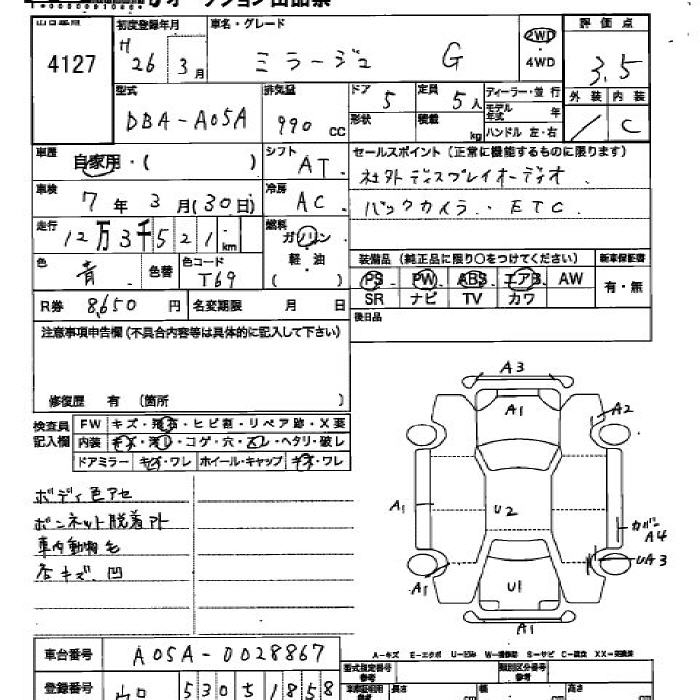 オークション出品票
4127
初度登録年月
H 26年 3月
車名・グレード
ミラージュ G
2WD
4WD
評価点
3.5
外装 内装
/ C
型式
DBA-A05A
排気量
990 CC
ドア
5
定員
5人
形状
積載
kg
ディーラー・並行
モデル年式 年
ハンドル 左・右
車歴
自家用・( )
シフト
AT
セールスポイント(正常に機能するものに限ります)
社外ディスプレイオーディオ
バックカメラ・ETC
車検
7年 3月(30日)
冷房
AC
走行
12万3千521km
燃料
ガソリン
軽・油
( )
色
青
色替
色コード
T69
装備品(純正品に限り○をつけてください)
新車保証書
PS PW ABS エアB AW
SR ナビ TV カワ
有・無
R券 8,650円
名変期限 月 日
後日品
注意事項申告欄(不具合内容等は具体的に記入して下さい)
修復歴 有 (箇所 )
検査員記入欄
FW キズ・飛石・ヒビ割・リペア跡・X要
内装 キズ・汚レ・コゲ・穴・スレ・ヘタリ・破レ
ドアミラー キズ・ワレ ホイール・キャップ キズ・ワレ
ボディ色アセ
ボンネット脱着外
車内動物毛
各キズ、凹
A3
A1
A2
A1
U2
カバー
A4
UA3
A1
U1
A1
車台番号
A05A-0028867
A-キズ E-エクボ U-凹み W-補修跡 S-サビ C-腐食 XX-交換済
登録番号
530 51858
型式指定番号
参考
類別区分番号
参考
車庫証明用
参考
長さ
幅
高さ
cm
cm
cm